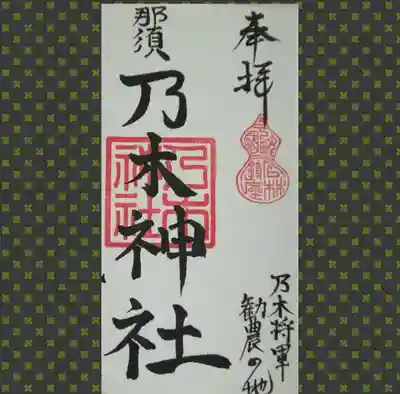 奉拝
乃木将軍
勧農の地
那須
乃木神社
乃木
神社